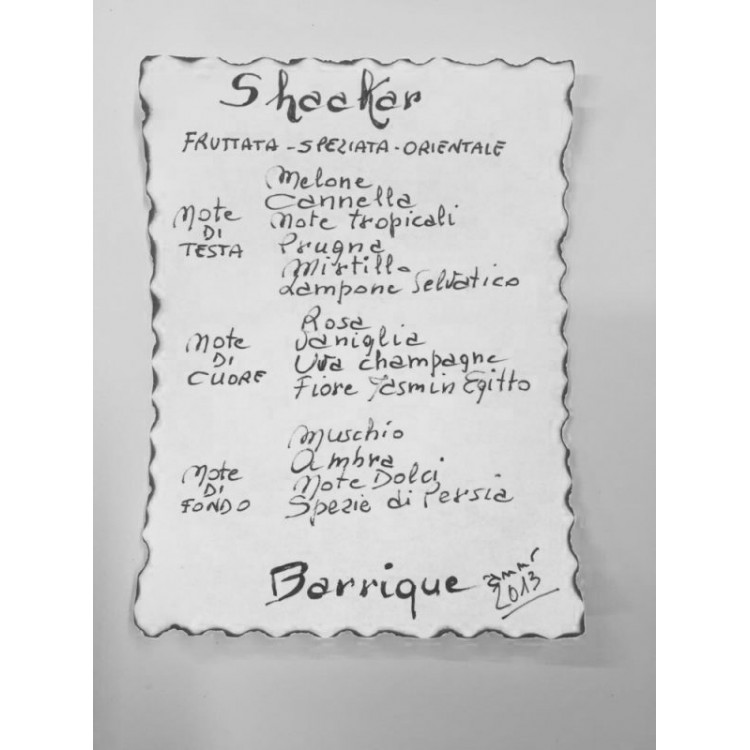 Shaakar
FRUTTATA - SPEZIATA - ORIENTALE
NOTE
DI
TESTA
Melone
Cannella
Note tropicali
Prugna
Mirtillo
Lampone Selvatico
NOTE
DI
CUORE
Rosa
Vaniglia
Uva champagne
Fiore Jasmin Egitto
NOTE
DI
FONDO
Muschio
Ambra
Note Dolci
Spezie di Persia
Barrique
2013